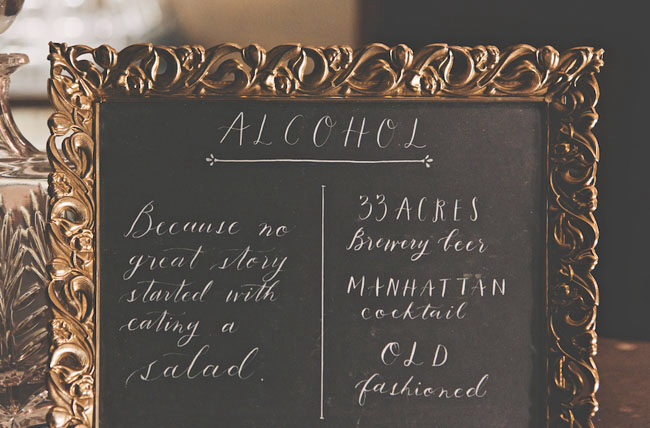 ALCOHOL
Because no
great story
started with
eating a
salad.
33 ACRES
Brewery beer
MANHATTAN
cocktail
OLD
fashioned